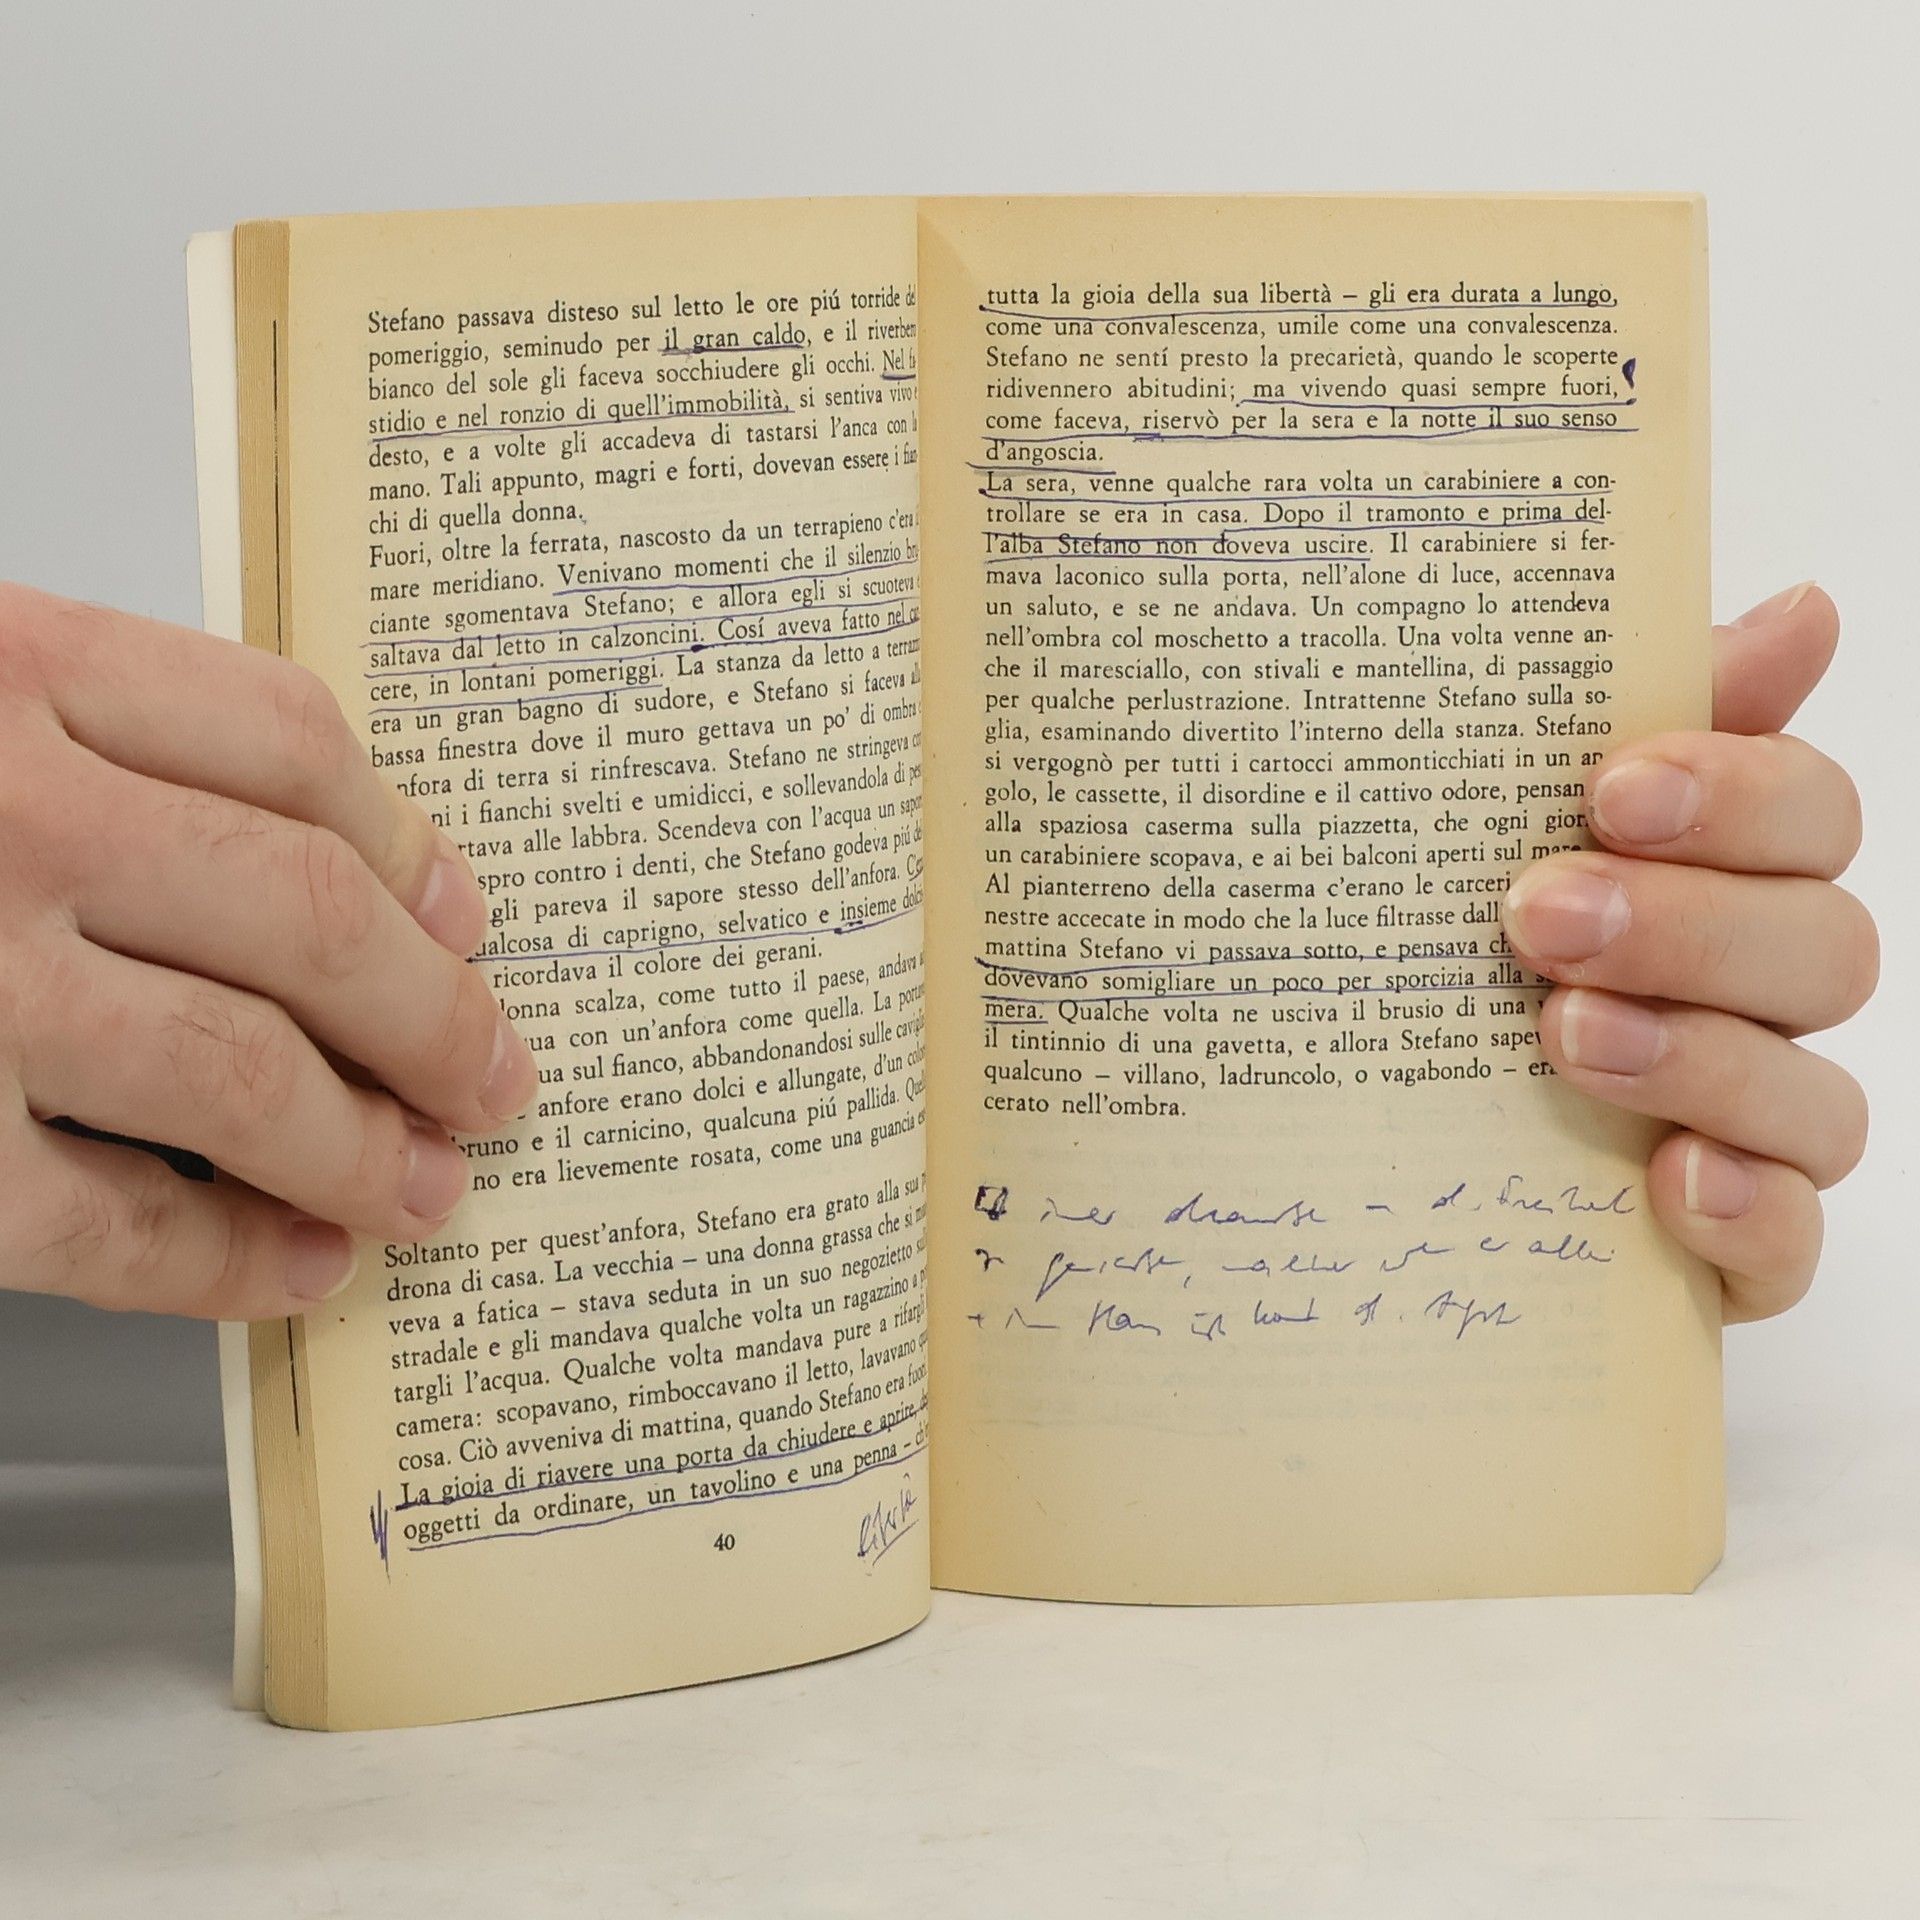 Stefano passava disteso sul letto le ore piú torride del
pomeriggio, seminudo per il gran caldo, e il riverbero
bianco del sole gli faceva socchiudere gli occhi. Nel fa
stidio e nel ronzio di quell'immobilità, si sentiva vivo e
desto, e a volte gli accadeva di tastarsi l'anca con la
mano. Tali appunto, magri e forti, dovevan essere i fian
chi di quella donna.
Fuori, oltre la ferrata, nascosto da un terrapieno c'era
mare meridiano. Venivano momenti che il silenzio bru
ciante sgomentava Stefano; e allora egli si scuoteva e
saltava dal letto in calzoncini. Cosí aveva fatto nel car
cere, in lontani pomeriggi. La stanza da letto a terrazz
era un gran bagno di sudore, e Stefano si faceva alla
bassa finestra dove il muro gettava un po' di ombra e
nfora di terra si rinfrescava. Stefano ne stringeva
ni i fianchi svelti e umidicci, e sollevandola di pes
rtava alle labbra. Scendeva con l'acqua un sapor
spro contro i denti, che Stefano godeva piú de
gli pareva il sapore stesso dell'anfora. C'era
ualcosa di caprigno, selvatico e insieme dolci
ricordava il colore dei gerani.
onna scalza, come tutto il paese, andava
ua con un'anfora come quella. La portav
ua sul fianco, abbandonandosi sulle caviglie
anfore erano dolci e allungate, d'un colo
bruno e il carnicino, qualcuna piú pallida. Quell
no era lievemente rosata, come una guancia es
Soltanto per quest'anfora, Stefano era grato alla sua p
drona di casa. La vecchia – una donna grassa che si muo
veva a fatica – stava seduta in un suo negozietto sul
stradale e gli mandava qualche volta un ragazzino a p
targli l'acqua. Qualche volta mandava pure a rifargli
camera: scopavano, rimboccavano il letto, lavavano qua
cosa. Ciò avveniva di mattina, quando Stefano era fuori.
La gioia di riavere una porta da chiudere e aprire, de
oggetti da ordinare, un tavolino e una penna –
40
libertà
tutta la gioia della sua libertà – gli era durata a lungo,
come una convalescenza, umile come una convalescenza.
Stefano ne sentí presto la precarietà, quando le scoperte
ridivennero abitudini; ma vivendo quasi sempre fuori,
come faceva, riservò per la sera e la notte il suo senso
d'angoscia.
La sera, venne qualche rara volta un carabiniere a con-
trollare se era in casa. Dopo il tramonto e prima del-
l'alba Stefano non doveva uscire. Il carabiniere si fer-
mava laconico sulla porta, nell'alone di luce, accennava
un saluto, e se ne andava. Un compagno lo attendeva
nell'ombra col moschetto a tracolla. Una volta venne an-
che il maresciallo, con stivali e mantellina, di passaggio
per qualche perlustrazione. Intrattenne Stefano sulla so-
glia, esaminando divertito l'interno della stanza. Stefano
si vergognò per tutti i cartocci ammonticchiati in un an
golo, le cassette, il disordine e il cattivo odore, pensan
alla spaziosa caserma sulla piazzetta, che ogni giorn
un carabiniere scopava, e ai bei balconi aperti sul mare
Al pianterreno della caserma c'erano le carceri
nestre accecate in modo che la luce filtrasse dall
mattina Stefano vi passava sotto, e pensava ch
dovevano somigliare un poco per sporcizia alla s
mera. Qualche volta ne usciva il brusio di una v
il tintinnio di una gavetta, e allora Stefano sapev
qualcuno – villano, ladruncolo, o vagabondo – era
cerato nell'ombra.